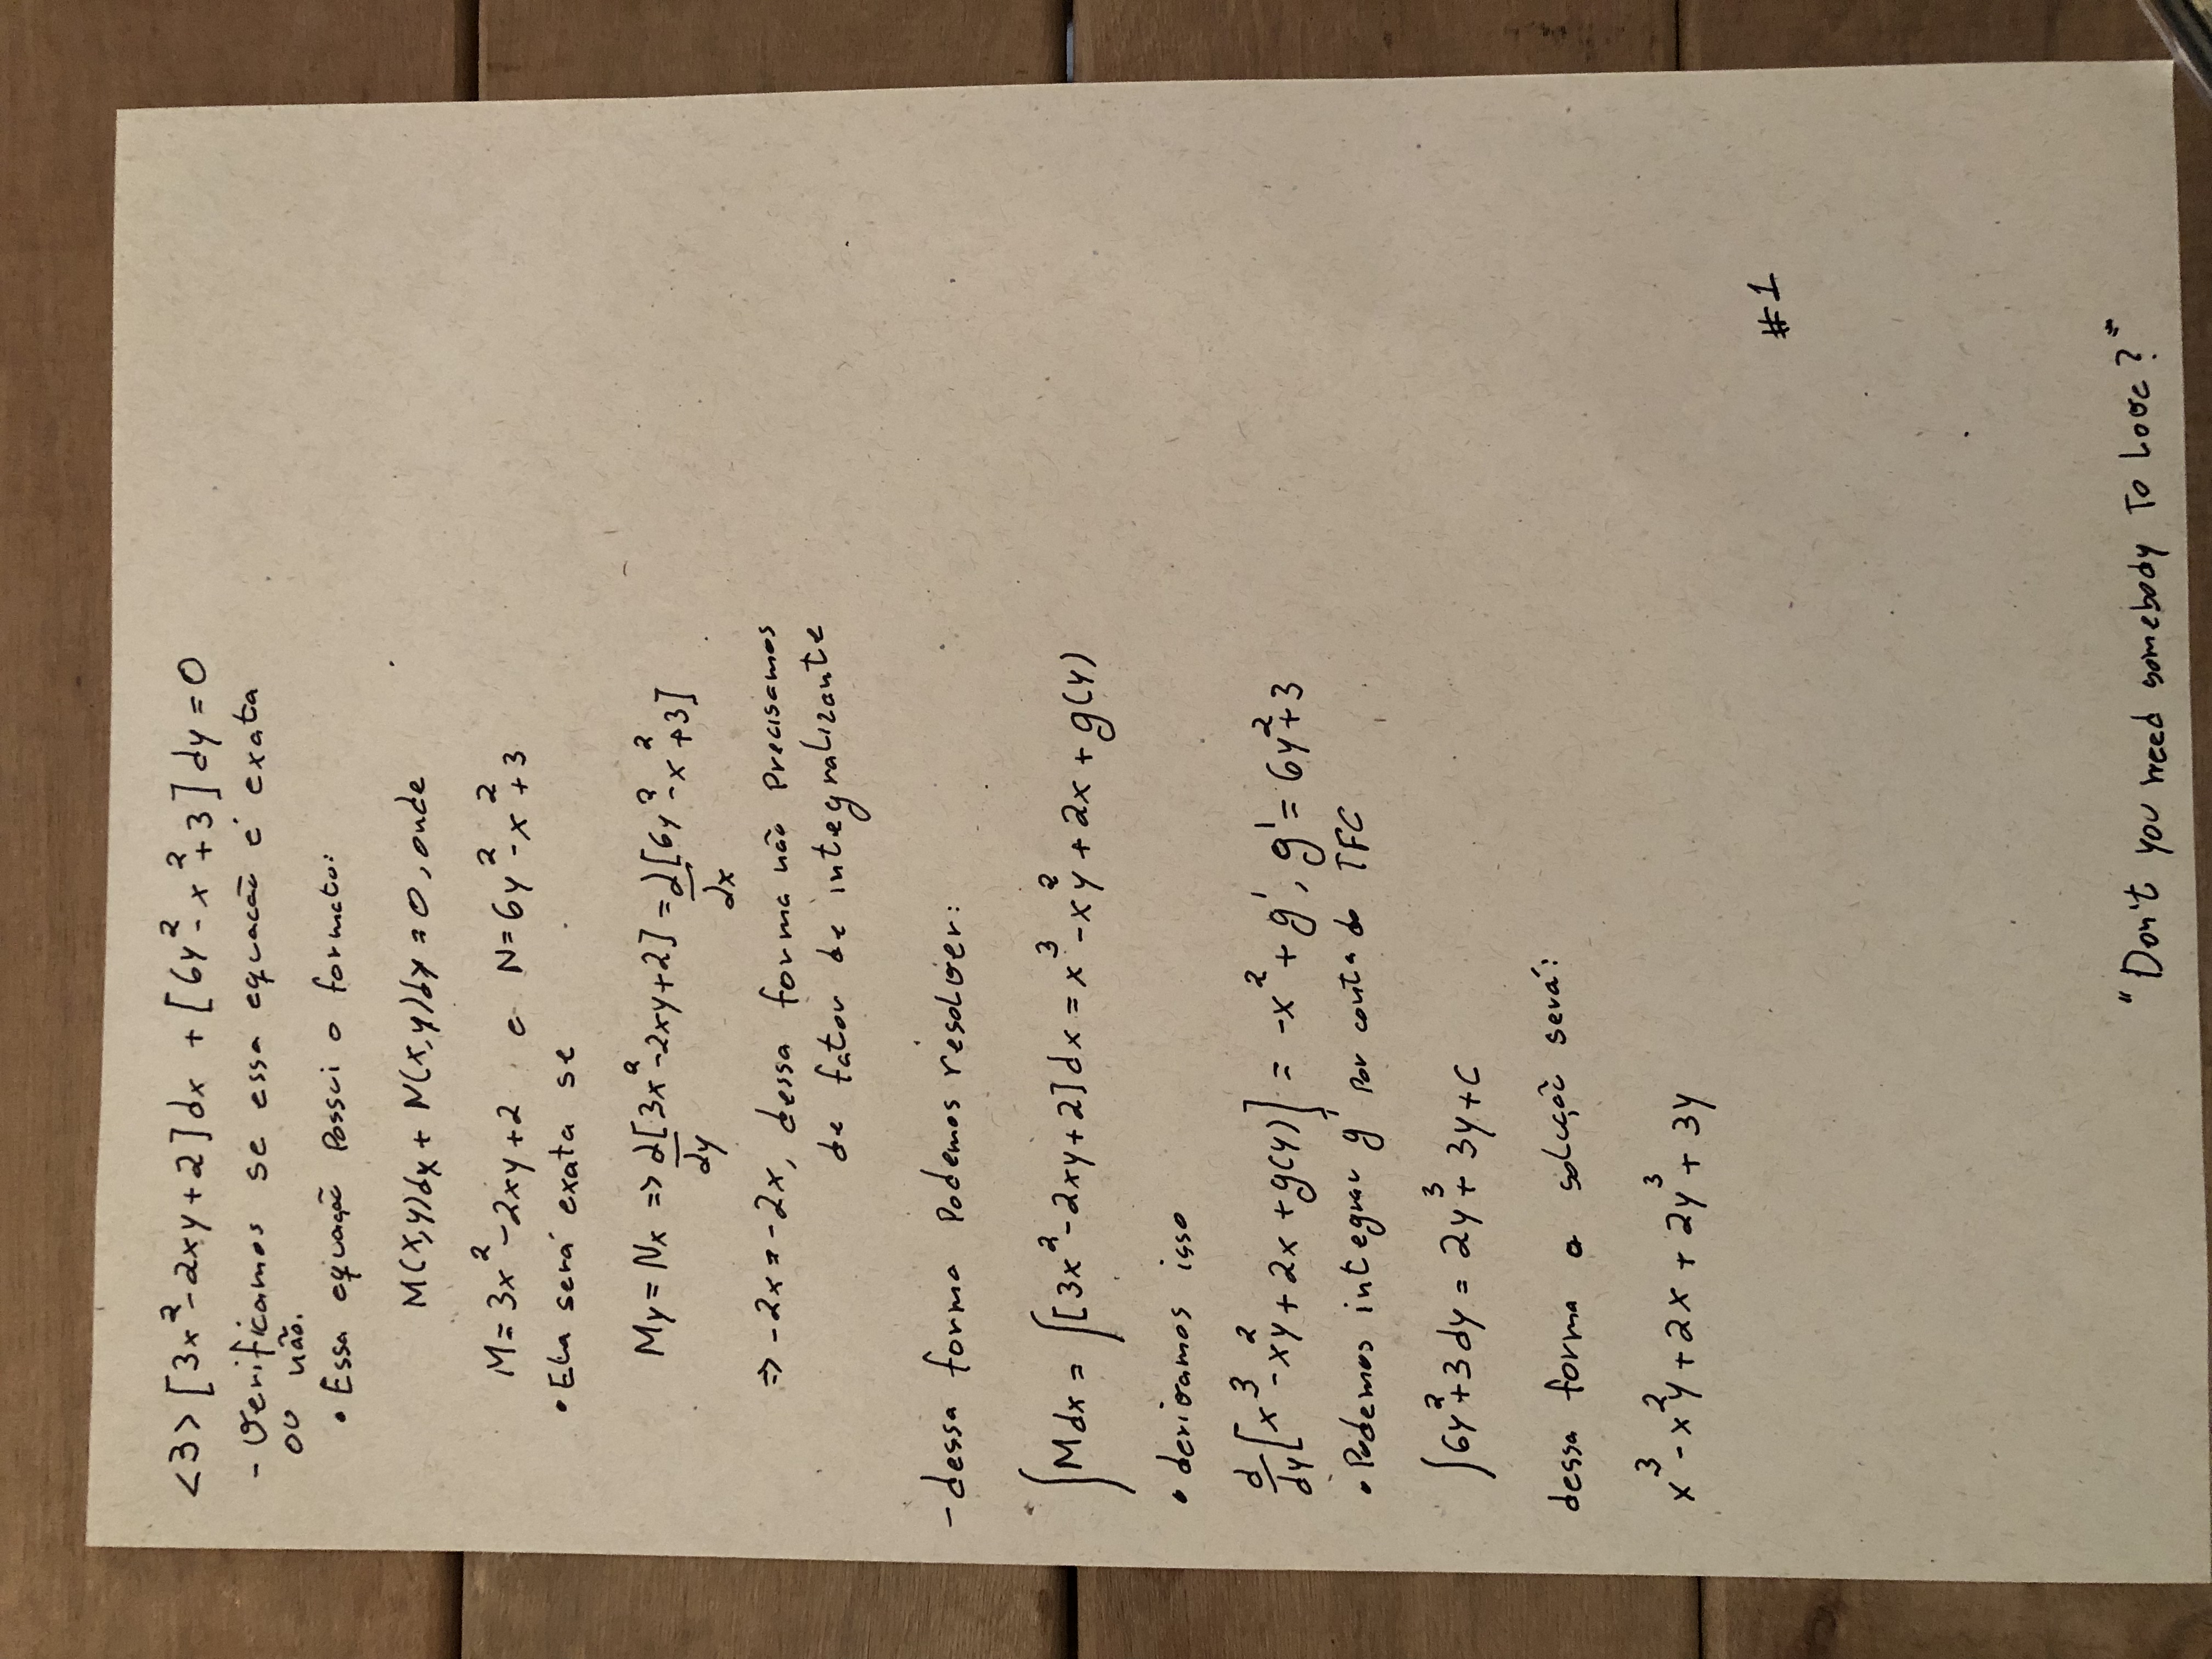 <3> [3x²-2xy+2]dx + [6y²-x²+3]dy=0
- Verificamos se essa equacão é exata
ou não.
• Essa equação Possui o formato:
M(x,y)dx + N(x,y)dy = 0, onde
M=3x²-2xy+2 e N=6y²-x²+3
• Ela será exata se
My = Nx => d/dy[3x²-2xy+2] = d/dx[6y²-x²+3]
=> -2x = -2x, dessa forma não Precisamos
de fator de integralizante
- dessa forma Podemos resolver:
∫Mdx = ∫[3x²-2xy+2]dx = x³-x²y+2x+g(y)
• derivamos isso
d/dy[x³-x²y+2x+g(y)] = -x²+g', g'=6y²+3
• Podemos integrar g' por conta do TFC
∫6y²+3dy = 2y³+3y+C
dessa forma a solução será:
x³-x²y+2x+2y³+3y
#1
"Don't you need somebody To Love?"